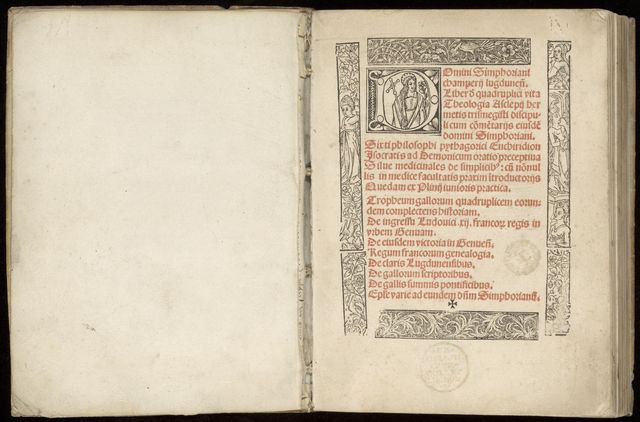 Domini Simphoriani
champerij lugduneñ.
Liber d̄ quadruplici vita
Theologia Asclepij her
metis trismegisti discipu
li cum cōmētarijs eiusdē
domini Simphoriani.
Sixti philosophi pythagorici Enchiridion
Isocratis ad Demonicum oratio preceptiua
Silue medicinales de simplicibꝰ: cū nōnul
lis in medice facultatis praxim ītroductorijs
Quedam ex Plinij iunioris practica.
Tropheum gallorum quadruplicem eorun
dem complectens historiam.
De ingressu Ludouici .xij. francorꝝ regis in
vrbem Genuam.
De eiusdem victoria in Genueñ.
Regum francorum genealogia.
De claris Lugdunensibus.
De gallorum scriptoribus.
De gallis summis pontificibus.
Epl̄e varie ad eundem dn̄m Simphorianū.